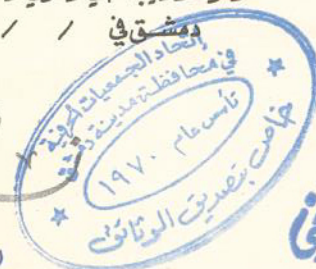 دمشق في / /
إتحاد الجمعيات الحرفية
في محافظة مدينة دمشق
تأسس عام
١٩٧٠
خاص بتصديق الوثائق